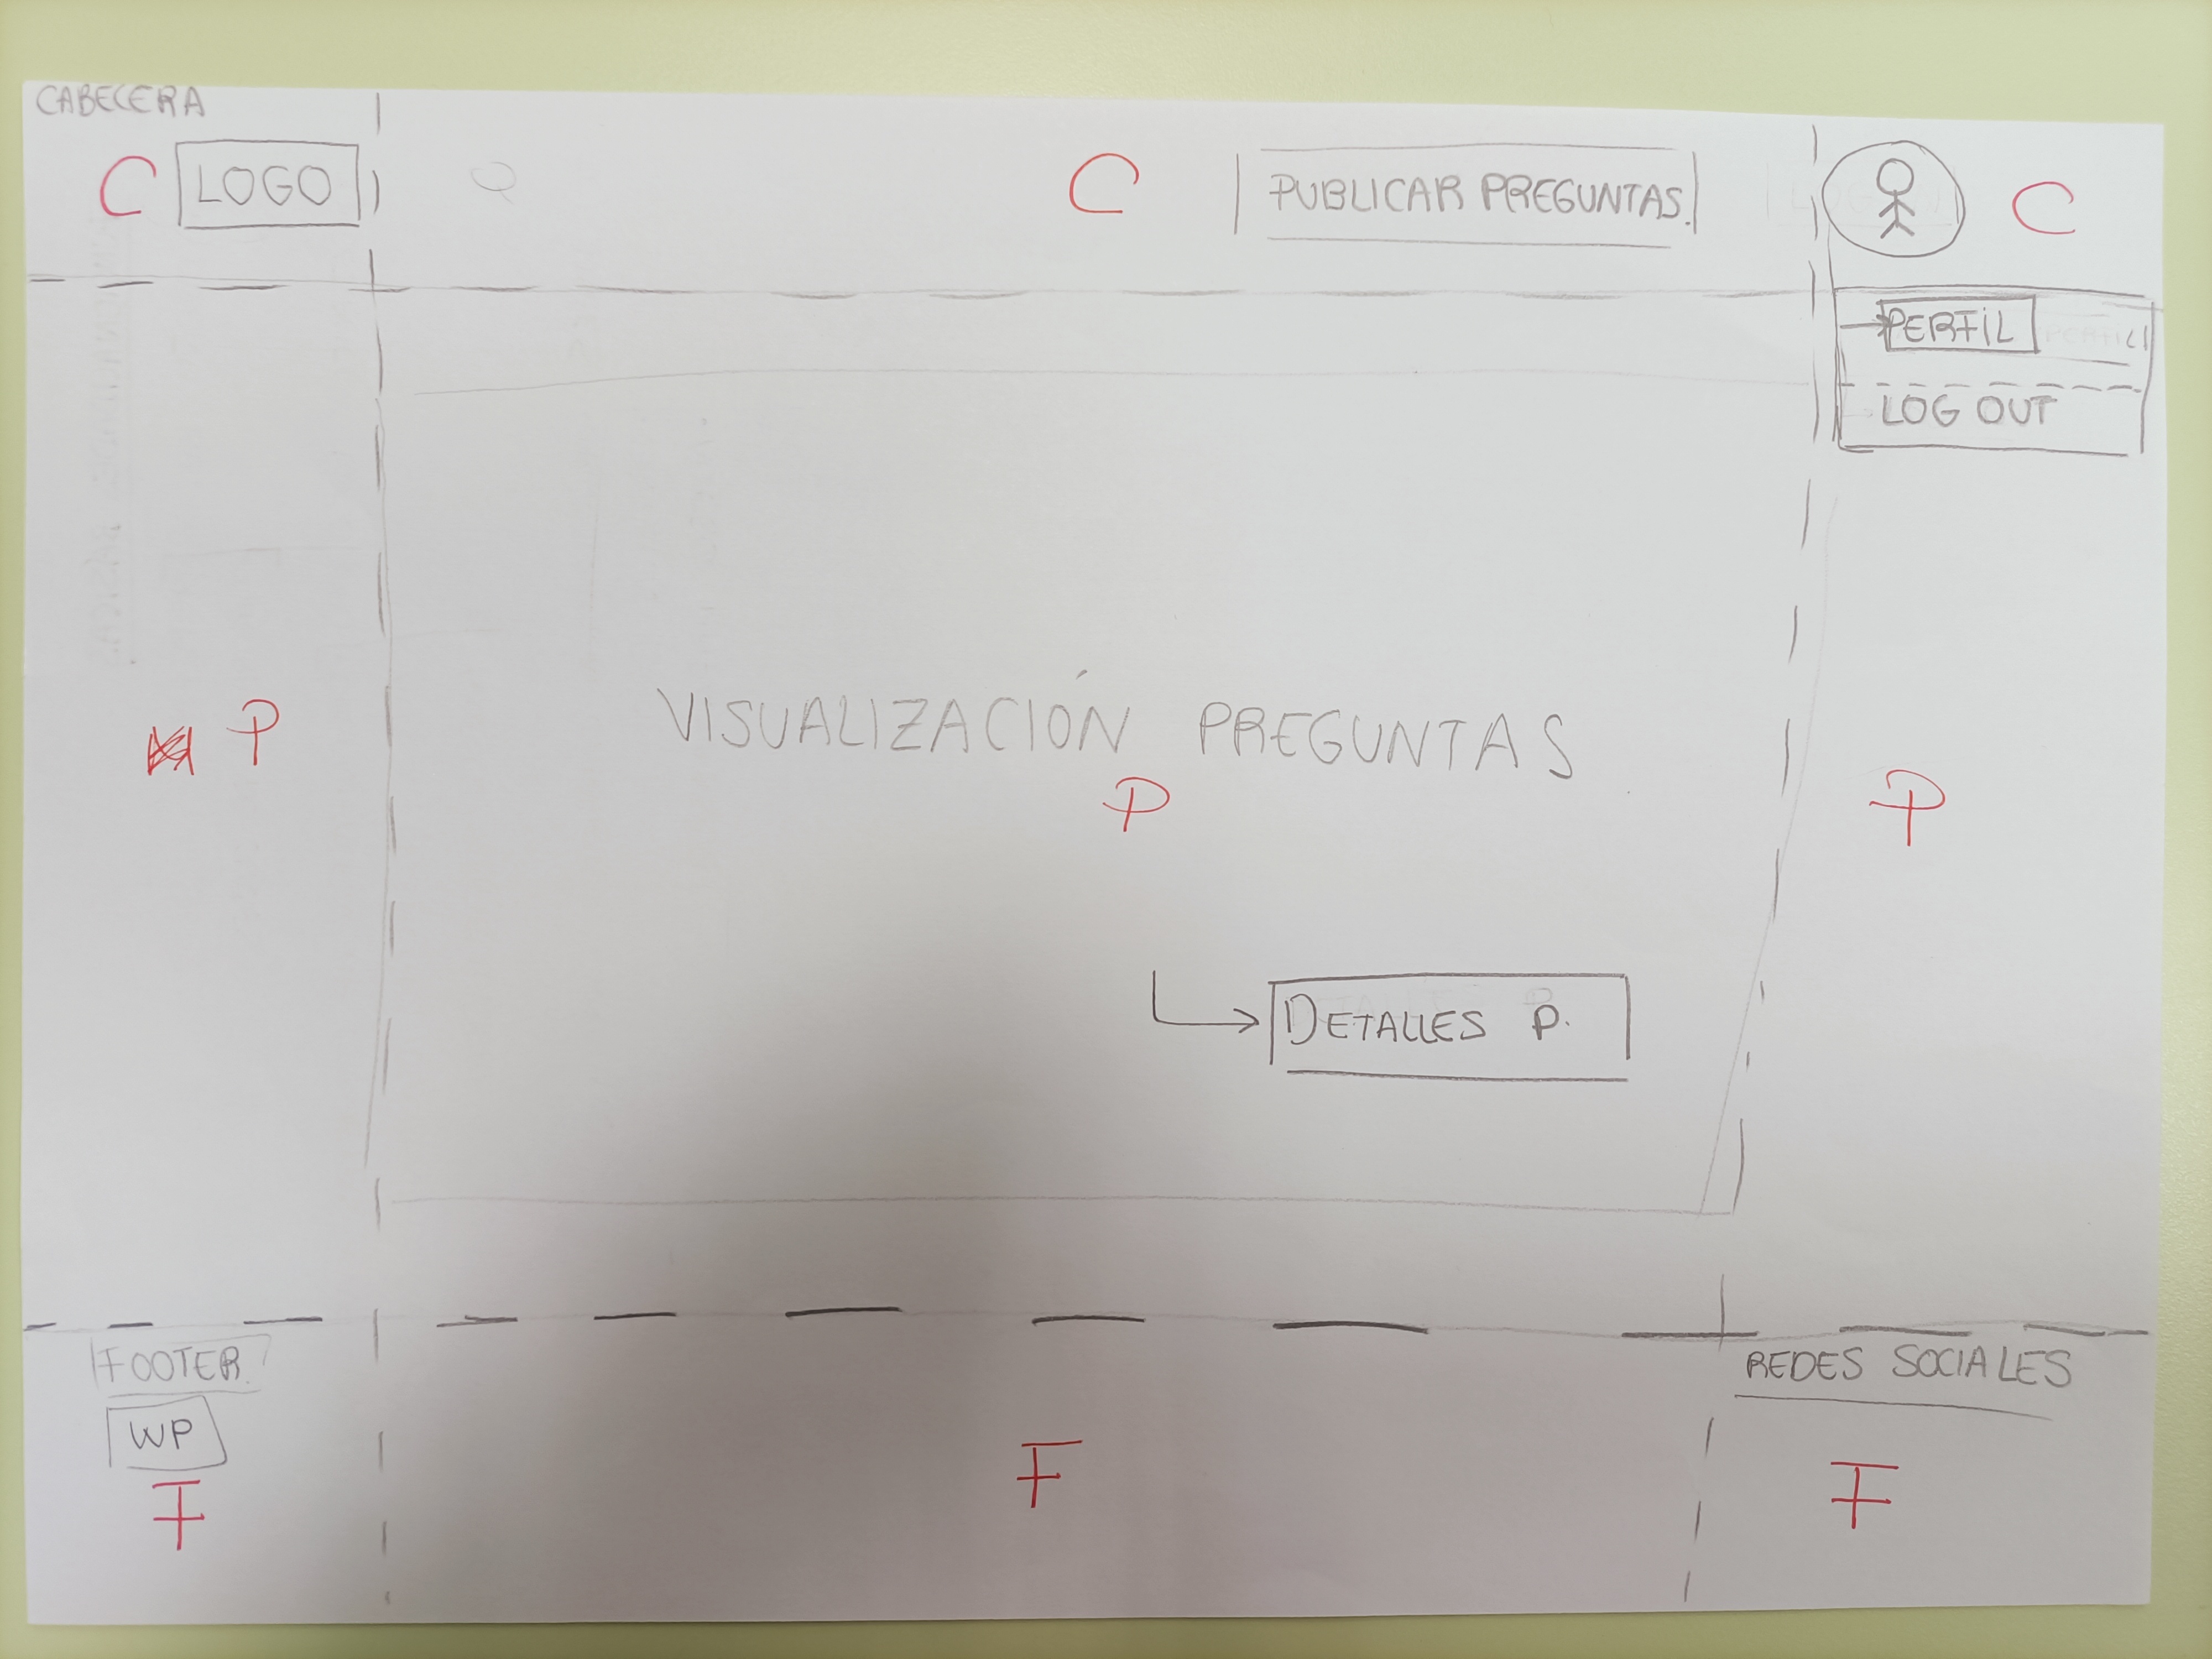 CABECERA
C LOGO
C PUBLICAR PREGUNTAS.
C
PERFIL
LOG OUT
P
VISUALIZACIÓN PREGUNTAS
P
P
DETALLES P.
FOOTER
WP
F
F
REDES SOCIALES
F